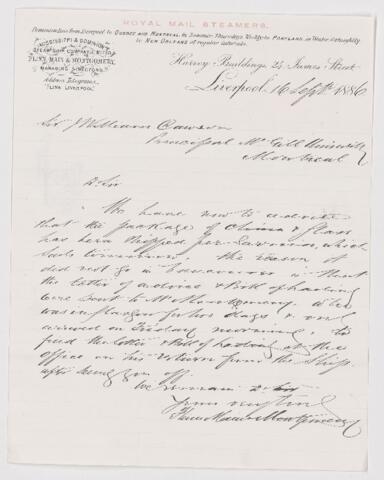 ROYAL MAIL STEAMERS.
MISSISSIPPI & DOMINION
STEAMSHIP COMPANY, LIMITED
FLINN, MAIN & MONTGOMERY,
MANAGING DIRECTORS.
Address Telegrams
"FLINN, LIVERPOOL."
Harvey Buildings, 24 James Street
Liverpool, 16 Sept. 1886
Sir J William Dawson
Principal McGill University
Montreal
D Sir
We have now to advise
that the package of China & glass
has been shipped per Sarnia, which
sails tomorrow. The reason it
did not go in Vancouver is that
the letter of advice & Bill of Lading
were sent to Mr Montgomery who
was in Glasgow for two days & only
arrived on Friday morning, to
find the letter & Bill of Lading at the
office on his return from the Ship
after seeing her off.
We remain D Sir
Yours very truly
Flinn Main & Montgomery